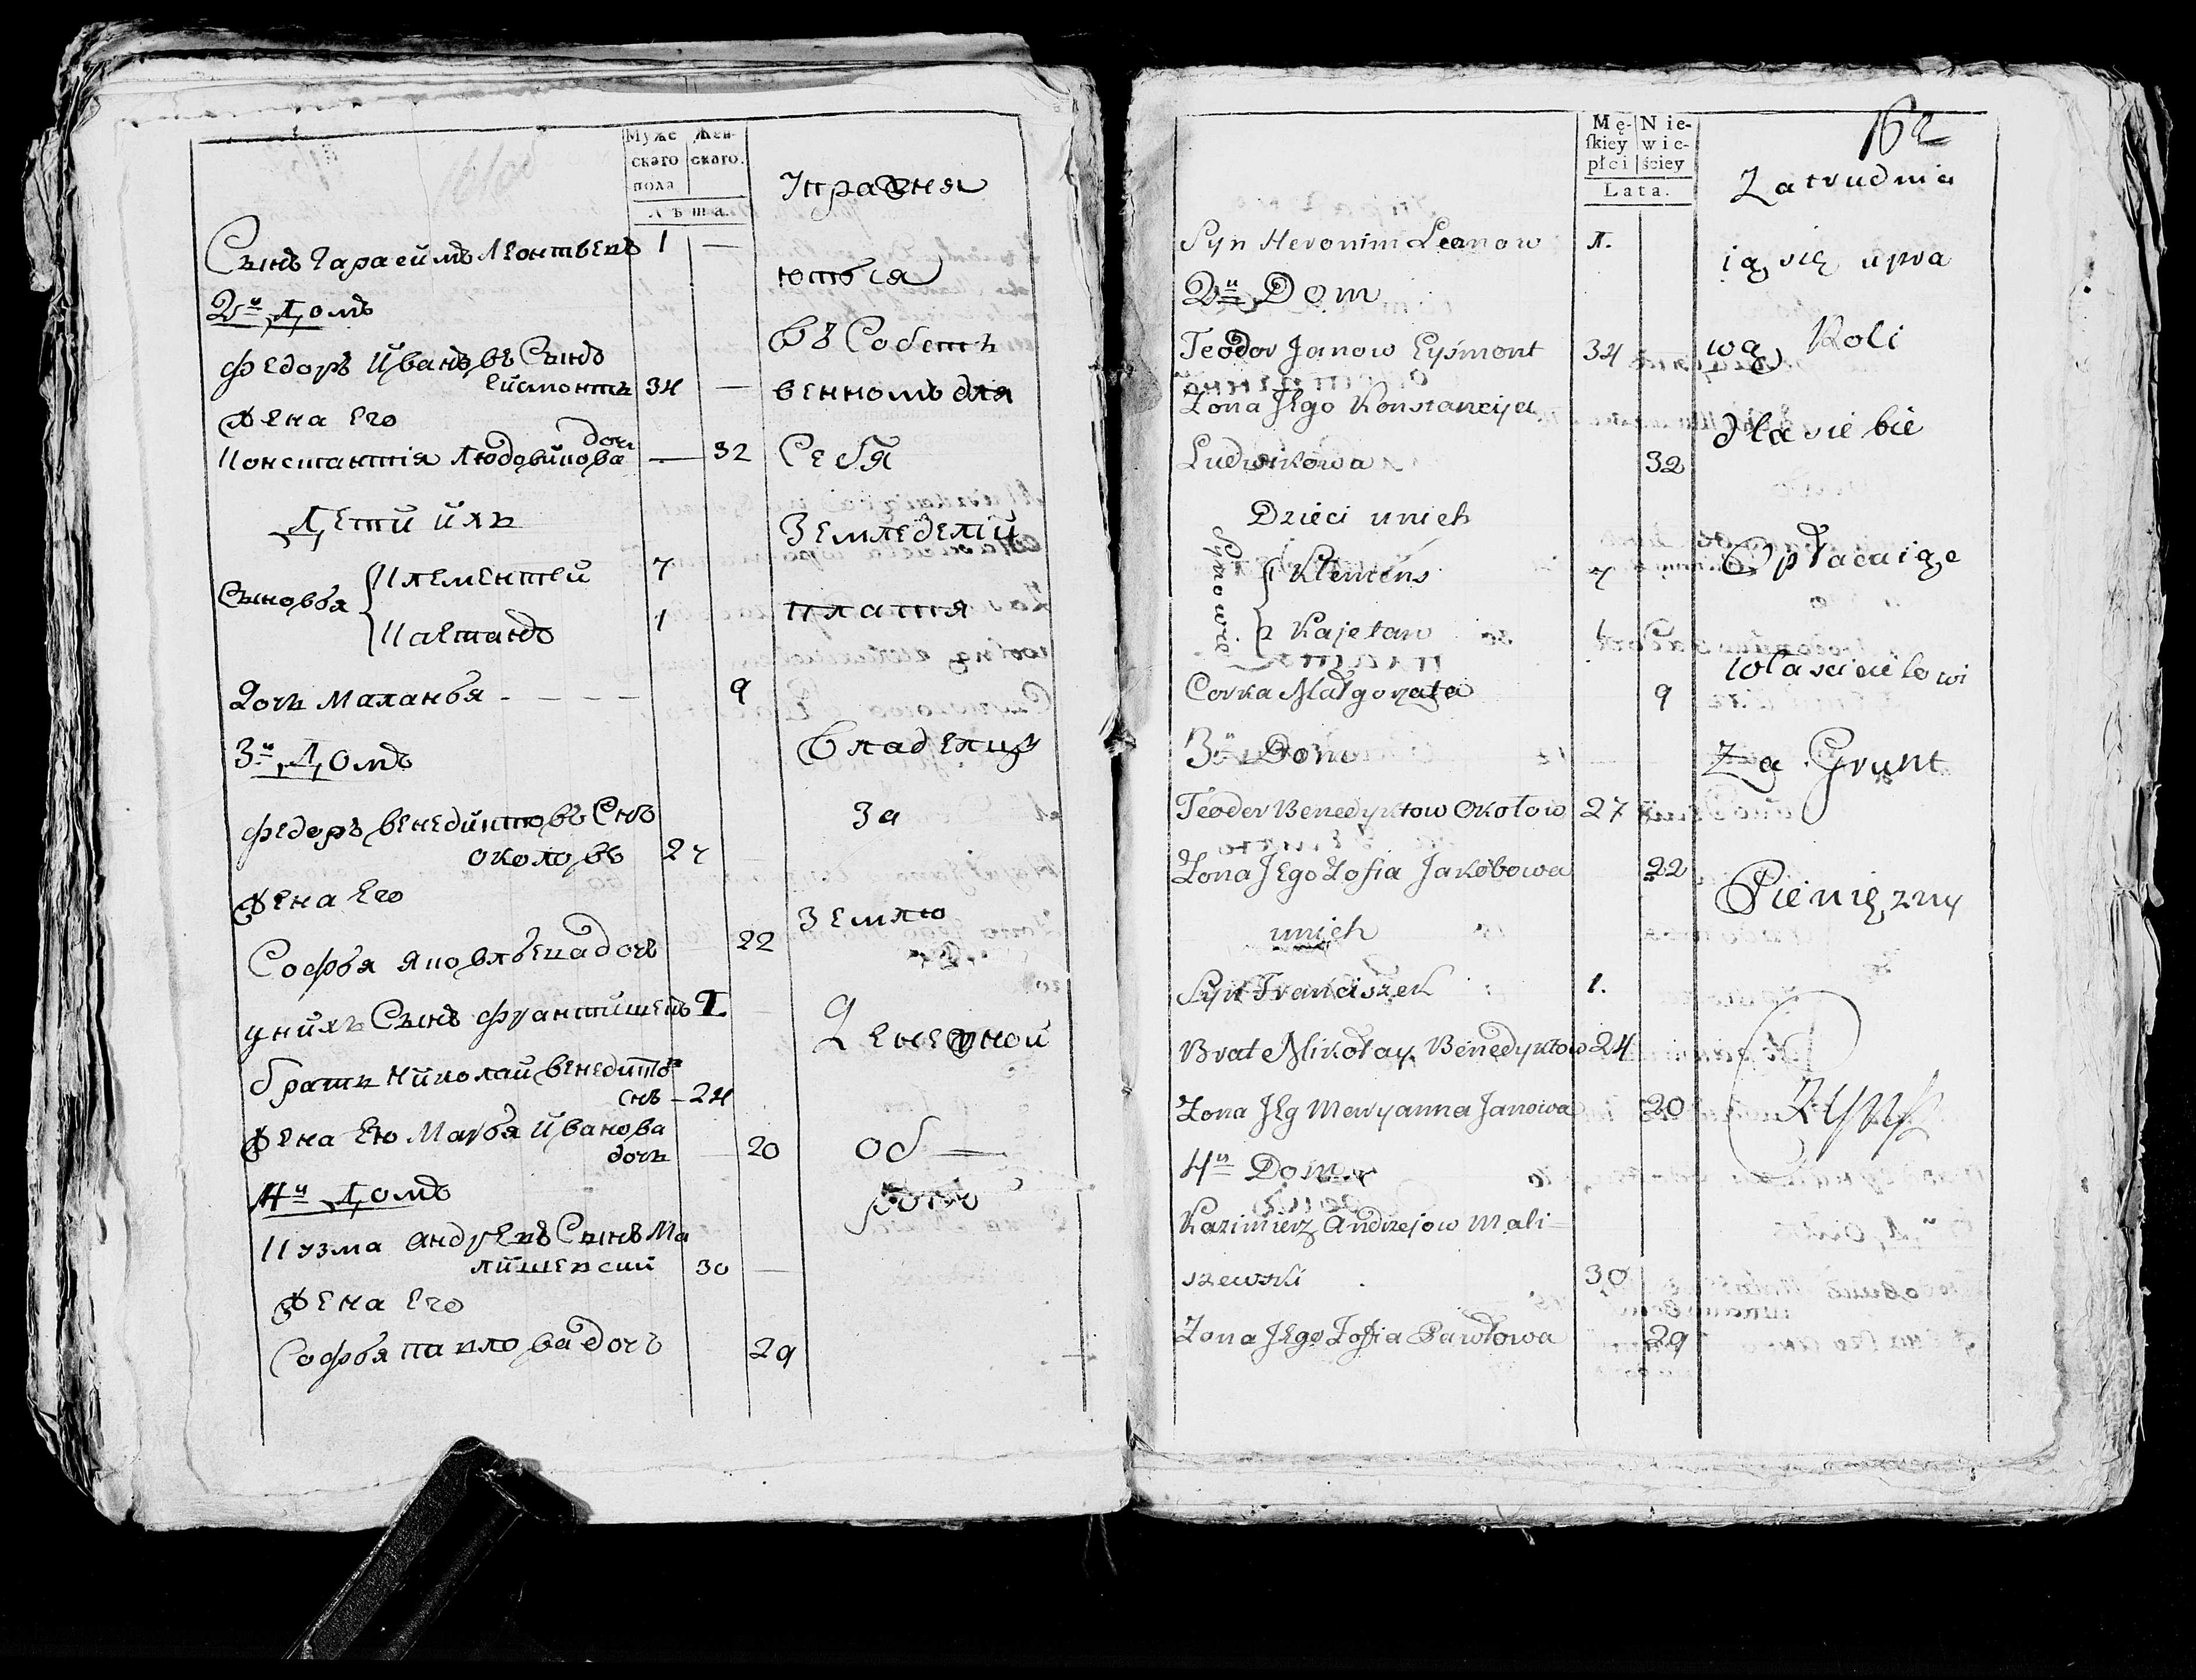 Муже
скаго
пола
Жен-
скаго.
Лѣта.
Упражня
Сынъ Гараеймъ Леонтьевъ 1 —
ютъся
2й Домъ
въ Собств
Федоръ Йвановъ Сынъ
Ейсмонтъ 34 —
венномъ для
Жена Его
Константія Людовикова дочь — 32
Себя
Дети йхъ
Земледелій
Сыновья
Клементей 7
Каетанъ 1
платя
Дочь Маланья - - - - 9
владелцу
3й Домъ
за
Федоръ Бенедиктовъ Снъ
Околовъ 27
Жена Его
землю
Софья Яковлѣва дочь 22
у нйхъ Сынъ Францишекъ 1
Денежной
братъ Николай Бенедиктовъ
снъ - 24
Жена Его Марья Йванова
дочь 20
об —
4й Домъ
рокъ
Кузма Андреевъ Сынъ Ма
лишевский 30 —
Жена Его
Софья Павлова дочь 29
162
Mę-
ſkiey
płci
Nie-
wie-
ściey
Lata.
Zatrudnia
Syn Heronim Leonow 1.
ią się upra
2й Dom
Teodor Janow Eysmont 34
wą Roli
Zona JEgo Konstancija
dla siebie
Ludwikowa 32
Dzieci unich
Synowie
1 Klemens 7
Opłacaiąc
2 Kajetan 1
własicielowi
Corka Małgorzata 9
3й Dom
Za Grunt
Teodor Benedyktow Okołow 27
Zona JEgo Zofia Jakóbowa 22
Pieniężny
unich
Syn Franciszek 1.
Brat Mikołay Benedyktow 24
Zona JEg Maryanna Janowa 20
Czynsz
4й Dom
Kazimierz Andrzejow Mali-
szewski 30
Zona JEgo Zofia Pawłowa 29